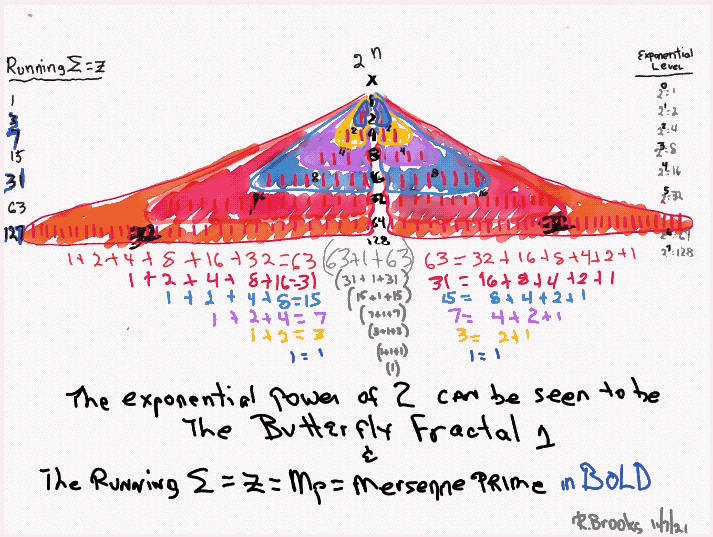 2ⁿ
x
Running Σ = Z
Exponential
Level
1
3
7
15
31
63
127
2⁰=1
2¹=2
2²=4
2³=8
2⁴=16
2⁵=32
2⁶=64
2⁷=128
1
2
2 4 2
4 8 4
8 16 8
16 32
32 64 32
128
1+2+4+8+16+32=63 (63+1+63) 63=32+16+8+4+2+1
1+2+4+8+16=31 (31+1+31) 31=16+8+4+2+1
1+2+4+8=15 (15+1+15) 15=8+4+2+1
1+2+4=7 (7+1+7) 7=4+2+1
1+2=3 (3+1+3) 3=2+1
1=1 (1+1+1) 1=1
(1)
The exponential power of 2 can be seen to be
The Butterfly Fractal 1
&
The Running Σ = Z = Mp = Mersenne PRIME in BOLD
R.Brooks 11/7/21